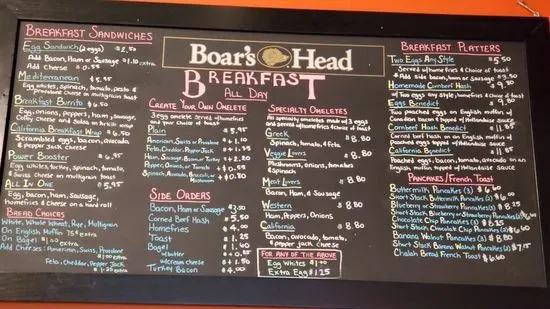 Boar's Head
BREAKFAST
ALL DAY
BREAKFAST SANDWICHES
Egg Sandwich (2 eggs) $2.50
Add Bacon, Ham or Sausage $1.10 extra
Add Cheese $0.55
Mediterranean $5.95
Egg whites, spinach, tomato, pesto &
Provolone cheese on multigrain toast
Breakfast Burrito $6.50
Eggs, onions, peppers, ham, sausage,
Colby cheese and salsa on tortilla wrap
California Breakfast Wrap $6.50
Scrambled eggs, bacon, avocado,
& pepper Jack cheese
Power Booster $6.95
Egg whites, turkey, spinach, tomato,
& Swiss cheese on multigrain toast
All In One $5.95
Egg, bacon, ham, Sausage,
homefries & cheese on a hard roll
BREAD CHOICES
White, Whole Wheat, Rye, Multigrain
On English Muffin 75¢ extra
On Bagel $1.00 extra
Add Cheeses: American, Swiss, Provolone
$1.00 extra
Feta, Cheddar, Pepper Jack
$1.25 extra
CREATE YOUR OWN OMELETE
3 egg omelete served w/ homefries
and your choice of toast
Plain $5.95
American, Swiss or Provolone +$1.10
Feta, Cheddar, Pepper Jack +$1.35
Ham, Sausage, Bacon or Turkey +$2.20
Pepper, Onions, or Tomato +$0.55
Spinach, Avocado, Broccoli or Mushroom +$0.80
SIDE ORDERS
Bacon, Ham or Sausage $3.50
Corned Beef Hash $5.50
Homefries $4.00
Toast $1.40
Bagel $1.60
w/butter $2.00
w/cream cheese $1.50
Turkey Bacon $4.00
SPECIALTY OMELETES
All specialty omeletes made of 3 eggs
and served w/ homefries & choice of toast
Greek $8.80
Spinach, tomato, & Feta
Veggie Lovers $8.80
Mushrooms, onions, tomatoes
& Spinach
Meat Lovers $8.80
Bacon, Ham, & Sausage
Western $8.80
Ham, Peppers, Onions
California $8.80
Bacon, avocado, tomato,
& pepper jack cheese
FOR ANY OF THE ABOVE
Egg Whites $1.00
Extra Egg $1.25
BREAKFAST PLATTERS
Two Eggs Any Style $5.50
Served w/ homefries & choice of toast
* Add side bacon, ham or Sausage $3.50
Homemade Cornbeef Hash $9.90
w/ Two eggs any style, homefries & choice of toast
Eggs Benedict $9.90
Two poached eggs on English muffin w/
Canadian bacon & topped w/ Hollandaise sauce
Cornbeef Hash Benedict $11.85
Cornbeef hash on an English muffin w/
Poached eggs & topped w/ Hollandaise sauce
California Benedict $11.85
Poached eggs, bacon, tomato, avocado on an
English muffin topped w/ Hollandaise sauce
PANCAKES/French Toast
Buttermilk Pancakes (3) $6.60
Short Stack Buttermilk Pancakes (2) $4.95
Blueberry or Strawberry Pancakes (3) $8.80
Short Stack Blueberry or Strawberry Pancakes (2)
Chocolate Chip Pancakes (3) $8.25
Short Stack Chocolate Chip Pancakes (2) $6.60
Banana Walnut Pancakes (3) $8.80
Short Stack Banana Walnut Pancakes (2) $7.15
Challah Bread French Toast $6.60